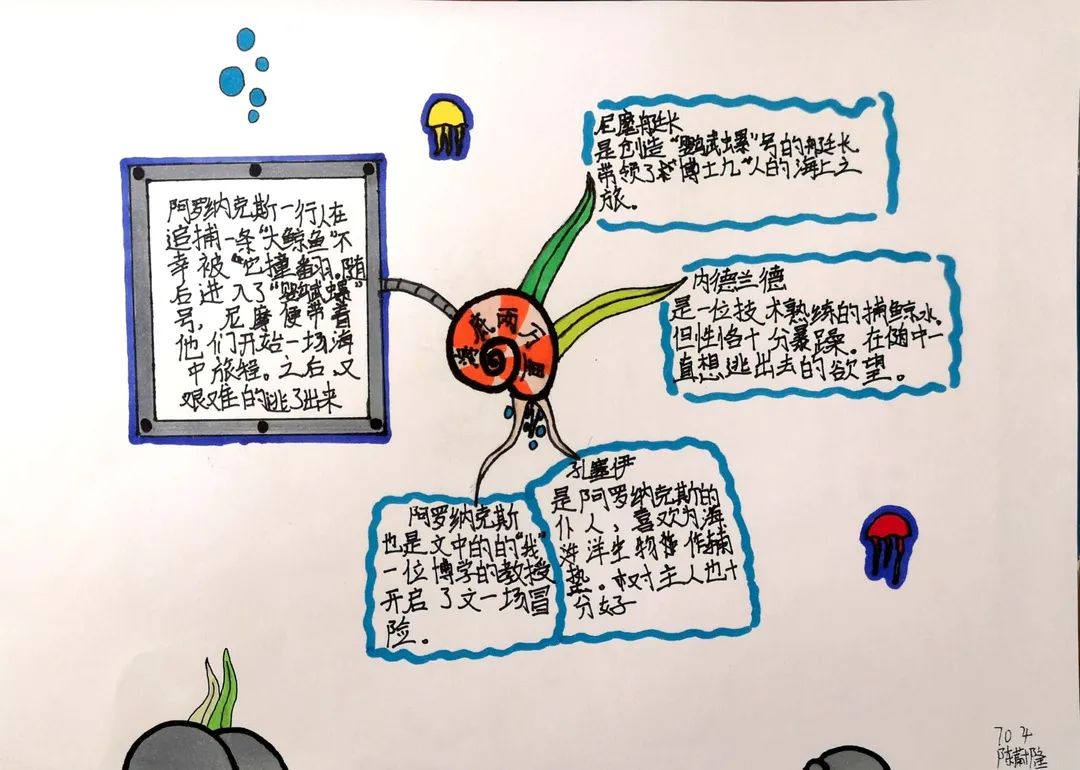 阿罗纳克斯一行人在
追捕一条“大鲸鱼”不
幸被“它撞翻。随
后进入了“鹦鹉螺”
号，尼摩便带着
他们开始一场海
中旅程。之后又
艰难的逃了出来
海底两万
里
尼摩艇长
是创造“鹦鹉螺”号的艇长
带领了“博士九”人的海上之
旅。
内德兰德
是一位技术熟练的捕鲸水
但性恪十分暴躁。在随中一
直想逃出去的欲望。
阿罗纳克斯
也是文中的的“我”
一位博学的教授
开启了文一场冒
险。
孔塞伊
是阿罗纳克斯的
仆人，喜欢为海
洋生物作铺
垫。对主人也十
分好
704
陈蔚隆